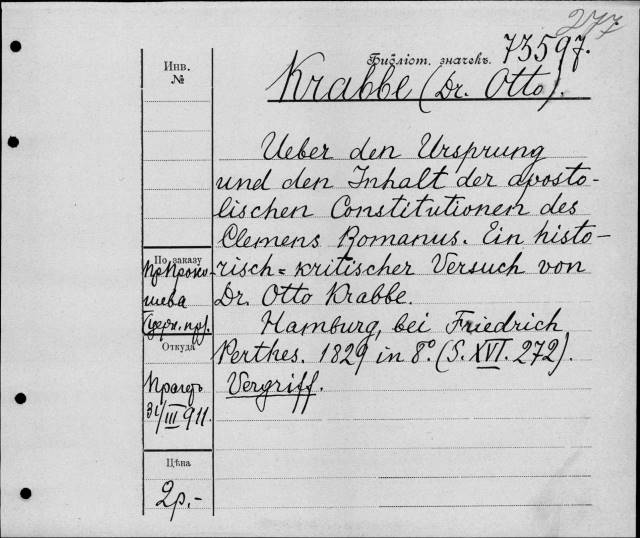 277
Библіот. значекъ. 73597.
Krabbe (Dr. Otto).
Инв.
№
Ueber den Ursprung
und den Inhalt der aposto-
lischen Constitutionen des
Clemens Romanus. Ein histo-
risch=kritischer Versuch von
Dr. Otto Krabbe.
Hamburg, bei Friedrich
Perthes. 1829 in 8° (S. XVI. 272).
Vergriff.
По заказу
пр. Проко-
шева
Откуда
31/III 911.
Цѣна
2р.-